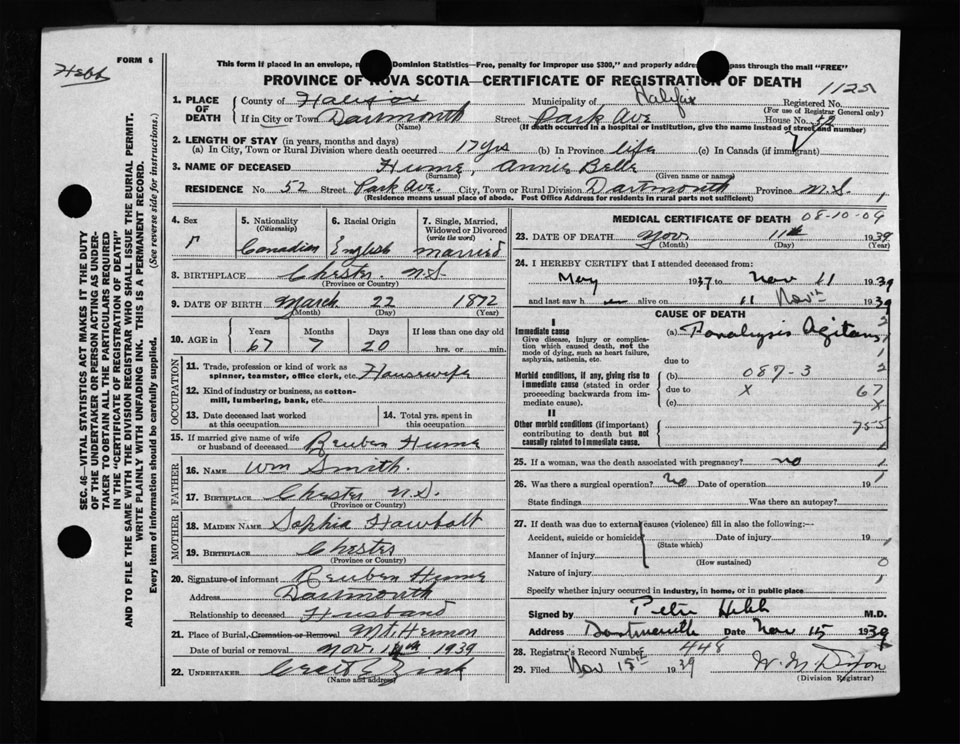 FORM 6
Hebb
This form if placed in an envelope, Dominion Statistics—Free, penalty for improper use $300," and properly addressed pass through mail "FREE"
PROVINCE OF NOVA SCOTIA—CERTIFICATE OF REGISTRATION OF DEATH
1125
1. PLACE OF DEATH
County of Halifax Municipality of Halifax Registered No.
(For use of Registrar General only)
If in City or Town Dartmouth Street Park Ave House No. 52
(Name) (If death occurred in a hospital or institution, give the name instead of street and number)
2. LENGTH OF STAY (in years, months and days)
(a) In City, Town or Rural Division where death occurred 17 yrs (b) In Province life (c) In Canada (if immigrant)
3. NAME OF DECEASED Hume, Annie Belle
(Surname) (Given name or names)
RESIDENCE No. 52 Street Park Ave. City, Town or Rural Division Dartmouth Province N.S. 1
(Residence means usual place of abode. Post Office Address for residents in rural parts not sufficient)
4. Sex
5. Nationality (Citizenship)
Canadian
6. Racial Origin
English
7. Single, Married, Widowed or Divorced (write the word)
married
8. BIRTHPLACE Chester. N.S.
(Province or Country)
9. DATE OF BIRTH March 22 1872
(Month) (Day) (Year)
10. AGE in
Years Months Days If less than one day old
67 7 20 hrs. or min.
OCCUPATION
11. Trade, profession or kind of work as spinner, teamster, office clerk, etc. Housewife
12. Kind of industry or business, as cotton-mill, lumbering, bank, etc.
13. Date deceased last worked at this occupation
14. Total yrs. spent in this occupation
15. If married give name of wife or husband of deceased Reuben Hume
FATHER
16. NAME Wm Smith.
17. BIRTHPLACE Chester N.S.
(Province or Country)
MOTHER
18. MAIDEN NAME Sophia Hawbolt
19. BIRTHPLACE Chester
(Province or Country)
20. Signature of informant Reuben Hume
Address Dartmouth
Relationship to deceased Husband
21. Place of Burial, Cremation or Removal Mt. Hermon
Date of burial or removal Nov. 14th 1939
22. UNDERTAKER Zink
(Name and address)
MEDICAL CERTIFICATE OF DEATH 08-10-09
23. DATE OF DEATH Nov 11th 1939
(Month) (Day) (Year)
24. I HEREBY CERTIFY that I attended deceased from:
May 1937 to Nov 11 1939
and last saw h er alive on 11 Nov 1939
CAUSE OF DEATH
I
Immediate cause
Give disease, injury or complication which caused death, not the mode of dying, such as heart failure, asphyxia, asthenia, etc.
(a) Paralysis Agitans 2
1
due to 1
Morbid conditions, if any, giving rise to immediate cause (stated in order proceeding backwards from immediate cause).
(b) 087-3 2
due to X 67
(c) X
II
Other morbid conditions (if important) contributing to death but not causally related to immediate cause.
755
1
25. If a woman, was the death associated with pregnancy? no 1
26. Was there a surgical operation? no Date of operation 19 1
State findings Was there an autopsy?
27. If death was due to external causes (violence) fill in also the following:—
Accident, suicide or homicide Date of injury 19 1
(State which)
Manner of injury 0
(How sustained)
Nature of injury 1
Specify whether injury occurred in industry, in home, or in public place
Signed by Peter Hebb M.D.
Address Dartmouth Date Nov 15 1939
28. Registrar's Record Number 448
29. Filed Nov 15th 1939 W. M. Dixon
(Division Registrar)
SEC. 46—VITAL STATISTICS ACT MAKES IT THE DUTY
OF THE UNDERTAKER OR PERSON ACTING AS UNDER-
TAKER TO OBTAIN ALL THE PARTICULARS REQUIRED
IN THE "CERTIFICATE OF REGISTRATION OF DEATH"
AND TO FILE THE SAME WITH THE DIVISION REGISTRAR WHO SHALL ISSUE THE BURIAL PERMIT.
WRITE PLAINLY WITH UNFADING INK. THIS IS A PERMANENT RECORD.
Every item of information should be carefully supplied. (See reverse side for instructions.)